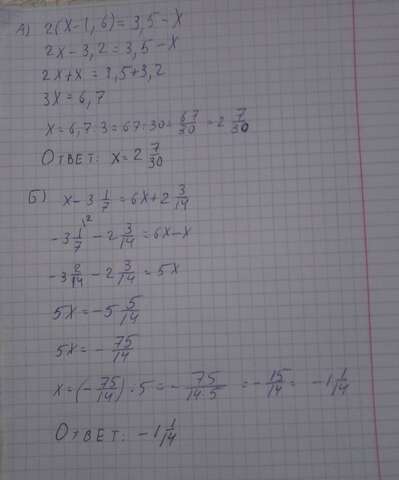 А) 2(x-1,6)=3,5-x
2x-3,2=3,5-x
2x+x=3,5+3,2
3x=6,7
x=6,7:3=67:30=67/30=2 7/30
Ответ: x=2 7/30
Б) x-3 1/7=6x+2 3/14
-3 1/7 \2 -2 3/14=6x-x
-3 2/14-2 3/14=5x
5x=-5 5/14
5x=-75/14
x=(-75/14):5=-75/14·5=-15/14=-1 1/14
Ответ: -1 1/14